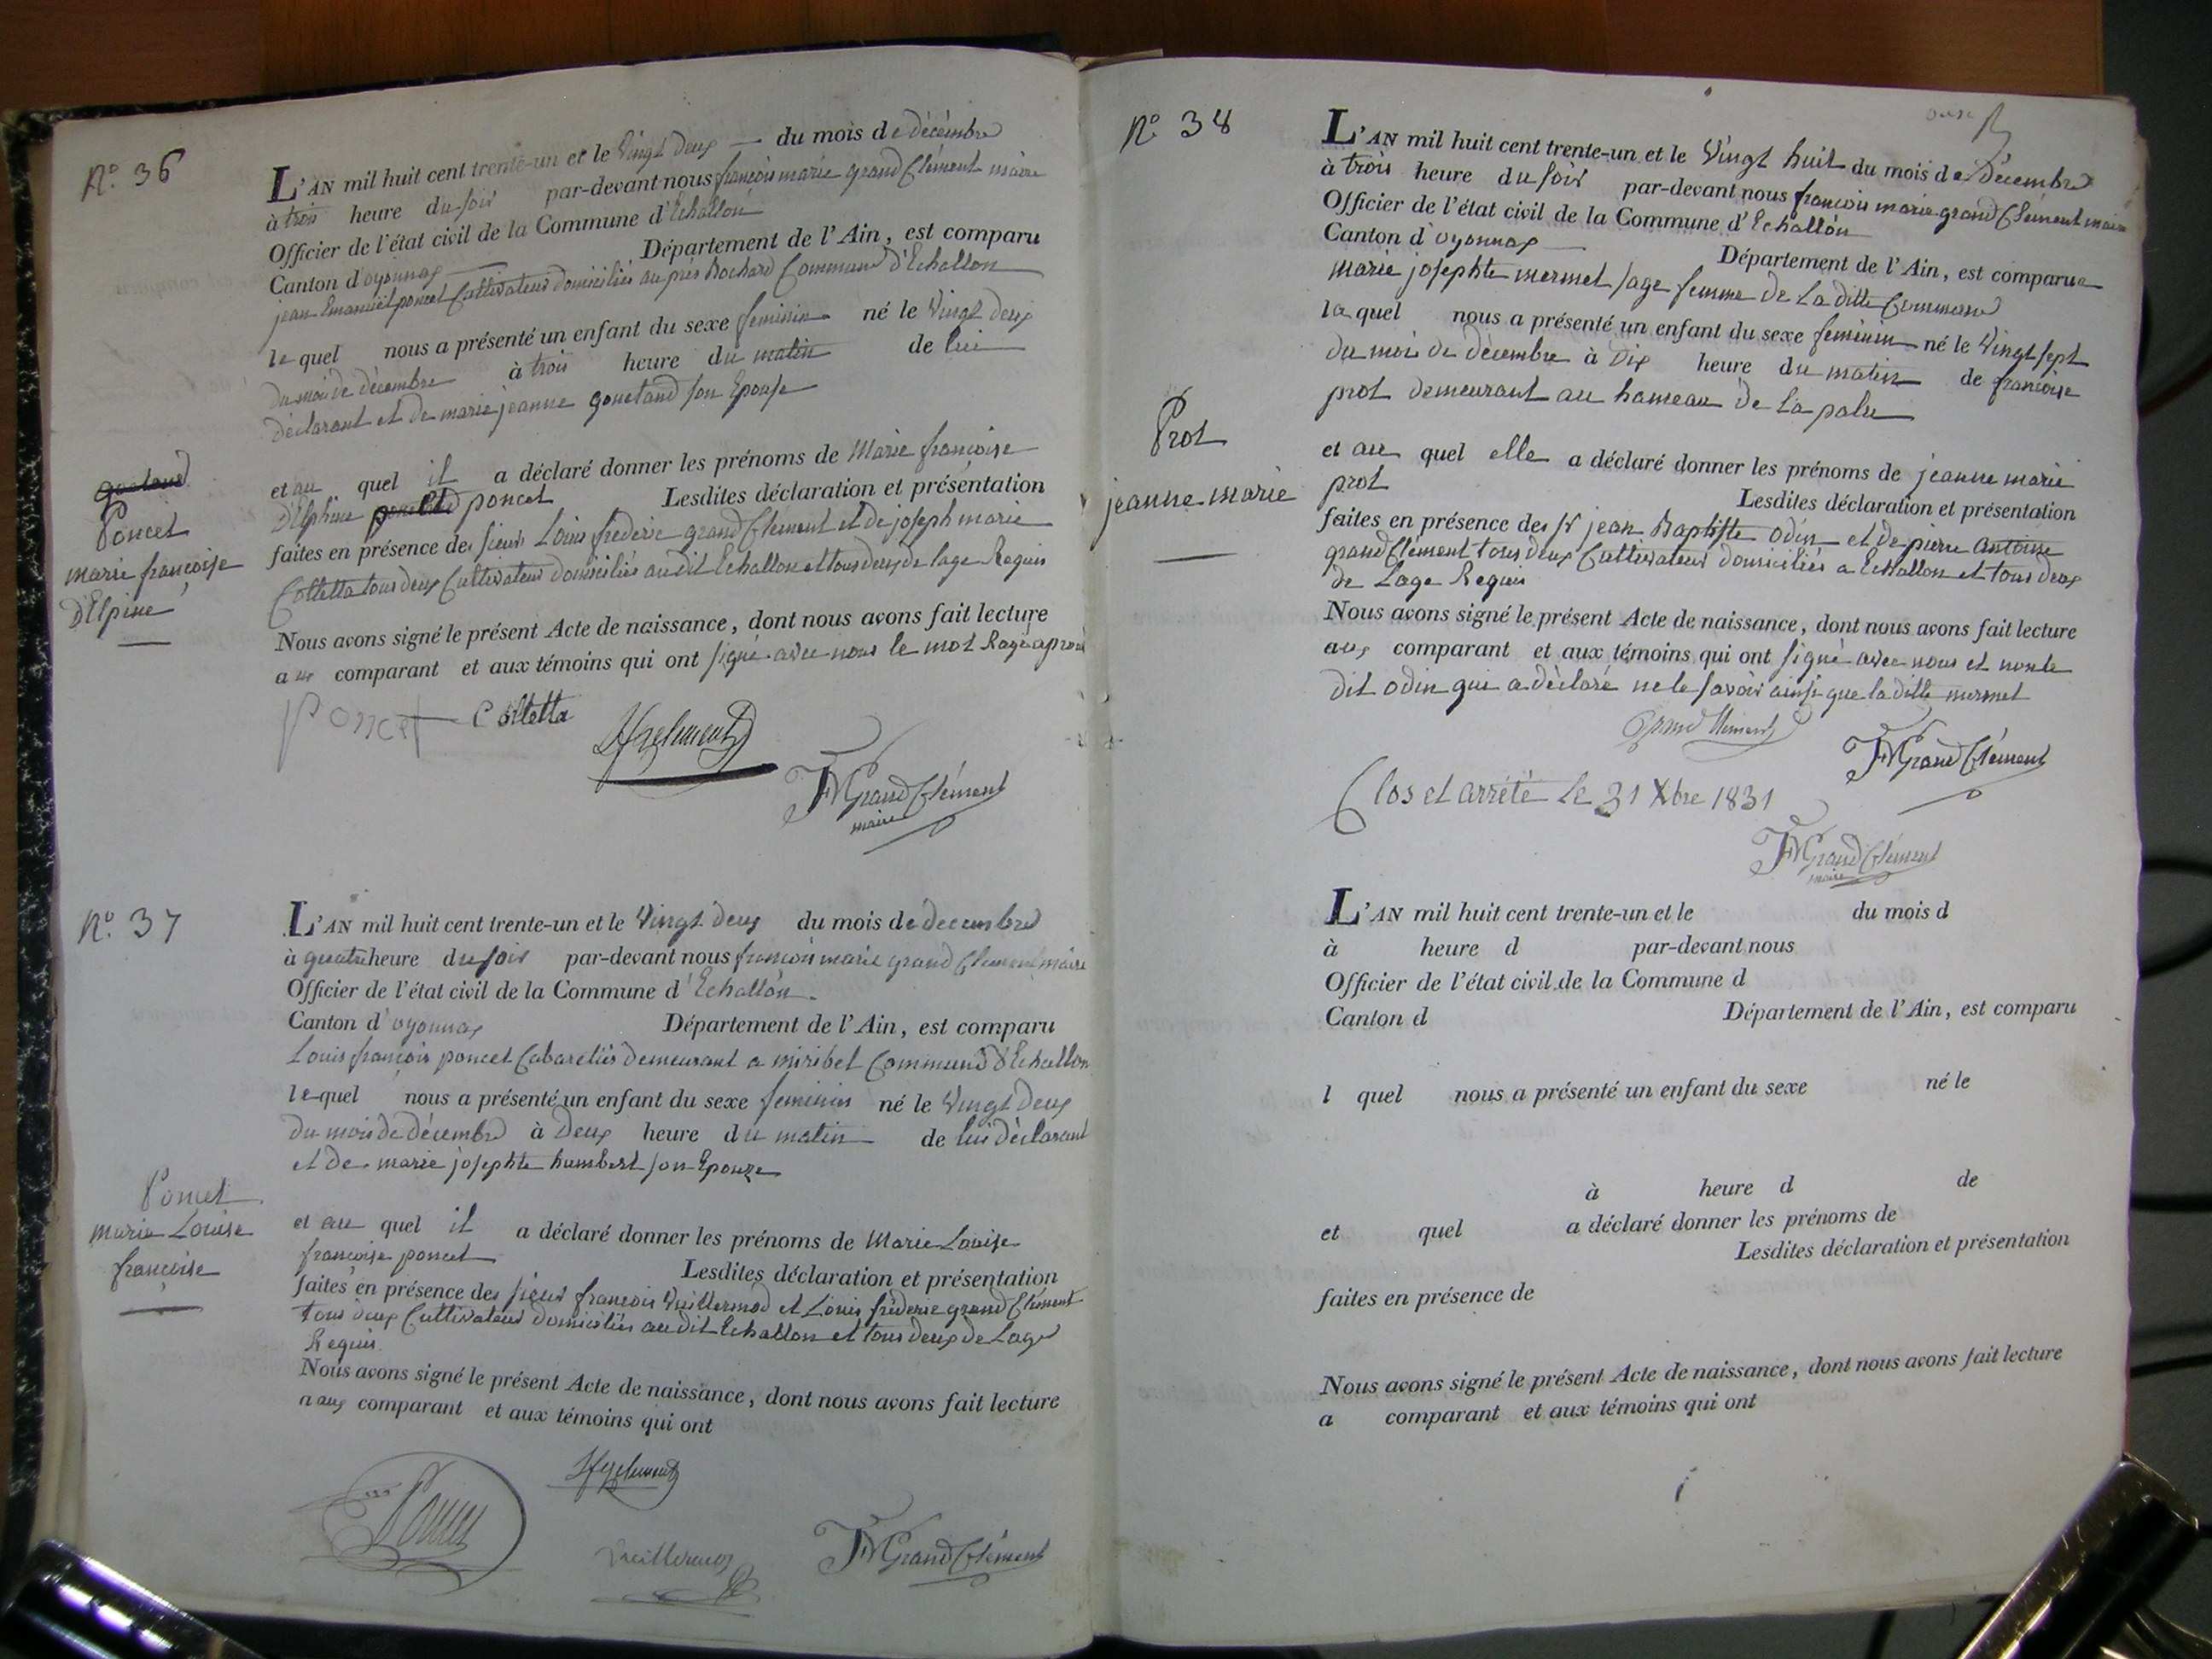 N.º 36
L'AN mil huit cent trente-un et le Vingt deux — du mois de décembre
à trois heure du soir par-devant nous françois marie grand Clément maire
Officier de l'état civil de la Commune d'Echallon
Canton d'oyonnax Département de l'Ain, est comparu
jean Emanuel poncet Cultivateur domiciliés au prés Rochard Commune d'Echallon
lequel nous a présenté un enfant du sexe feminin né le Vingt deux
du mois de décembre à trois heure du matin de lui
déclarant et de marie jeanne gouetand son Epouse
Poncet
marie francoise
d'Elpine
et au quel il a déclaré donner les prénoms de Marie françoise
délphine poncet Lesdites déclaration et présentation
faites en présence des sieurs Louis frederic grand Clément et de joseph marie
Colletta tous deux Cultivateurs domiciliés au dit Echallon et tous deux de lage Requis
Nous avons signé le présent Acte de naissance, dont nous avons fait lecture
aux comparant et aux témoins qui ont signé avec nous le mot Rayé aprouvé
Poncet Colletta
FMGrand Clément
maire
N.º 37
L'AN mil huit cent trente-un et le Vingt deux du mois de decembre
à quatre heure du soir par-devant nous françois marie grand Clement maire
Officier de l'état civil de la Commune d'Echallon.
Canton d'oyonnax Département de l'Ain, est comparu
Louis françois poncet Cabaretiés demeurant a miribel Commune d'Echallon
lequel nous a présenté un enfant du sexe feminin né le Vingt deux
du mois de décembre à Deux heure du matin de lui déclarant
et de marie josephte humbert son Epouze
Poncet
marie Louise
françoise
et au quel il a déclaré donner les prénoms de Marie Louise
françoise poncet Lesdites déclaration et présentation
faites en présence des sieurs francois Vuillermod et Louis fréderic grand Clément
tous deux Cultivateurs domiciliés au dit Echallon et tous deux de Lage
Requis
Nous avons signé le présent Acte de naissance, dont nous avons fait lecture
aux comparant et aux témoins qui ont
Poncet
Vuillermoz
FMGrand Clément
N.º 38
L'AN mil huit cent trente-un et le Vingt huit du mois de Décembre
à trois heure du soir par-devant nous francois marie grand Clément maire
Officier de l'état civil de la Commune d'Echallon
Canton d'oyonnax Département de l'Ain, est comparue
Marie josephte mermet sage femme de La ditte Commune
laquel nous a présenté un enfant du sexe feminin né le Vingt sept
du mois de décembre à Dix heure du matin de françoise
prot demeurant au hameau de La palu
Prot
jeanne marie
et au quel elle a déclaré donner les prénoms de jeanne marie
prot Lesdites déclaration et présentation
faites en présence des Sr jean Baptiste odin et de pierre Antoine
grand Clément tous deux Cultivateurs domiciliés a Echallon et tous deux
de Lage Requis
Nous avons signé le présent Acte de naissance, dont nous avons fait lecture
aux comparant et aux témoins qui ont signé avec nous et non le
dit odin qui a déclaré ne le savoir ainsi que la ditte mermet
Grand Clement
FMGrand Clément
Clos et arrété le 31 Xbre 1831
FMGrand Clément
maire
L'AN mil huit cent trente-un et le du mois d
à heure d par-devant nous
Officier de l'état civil de la Commune d
Canton d Département de l'Ain, est comparu
l quel nous a présenté un enfant du sexe né le
à heure d de
et quel a déclaré donner les prénoms de
Lesdites déclaration et présentation
faites en présence de
Nous avons signé le présent Acte de naissance, dont nous avons fait lecture
a comparant et aux témoins qui ont